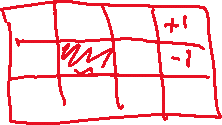 +1
-1